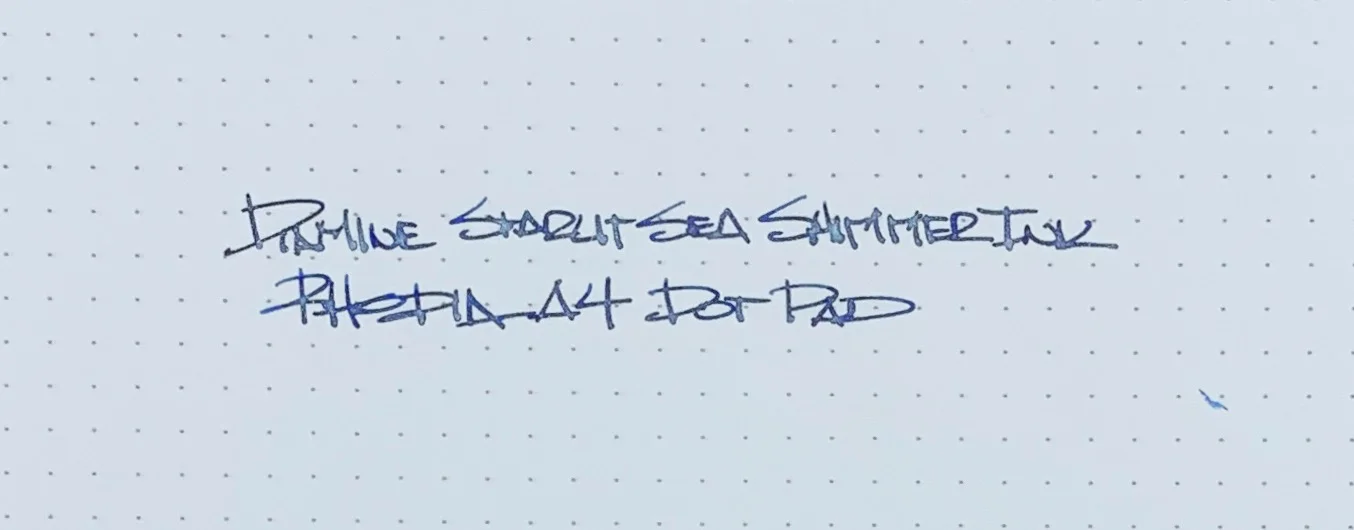 Diamine Starlit Sea Shimmer Ink
Rhodia A4 Dot Pad